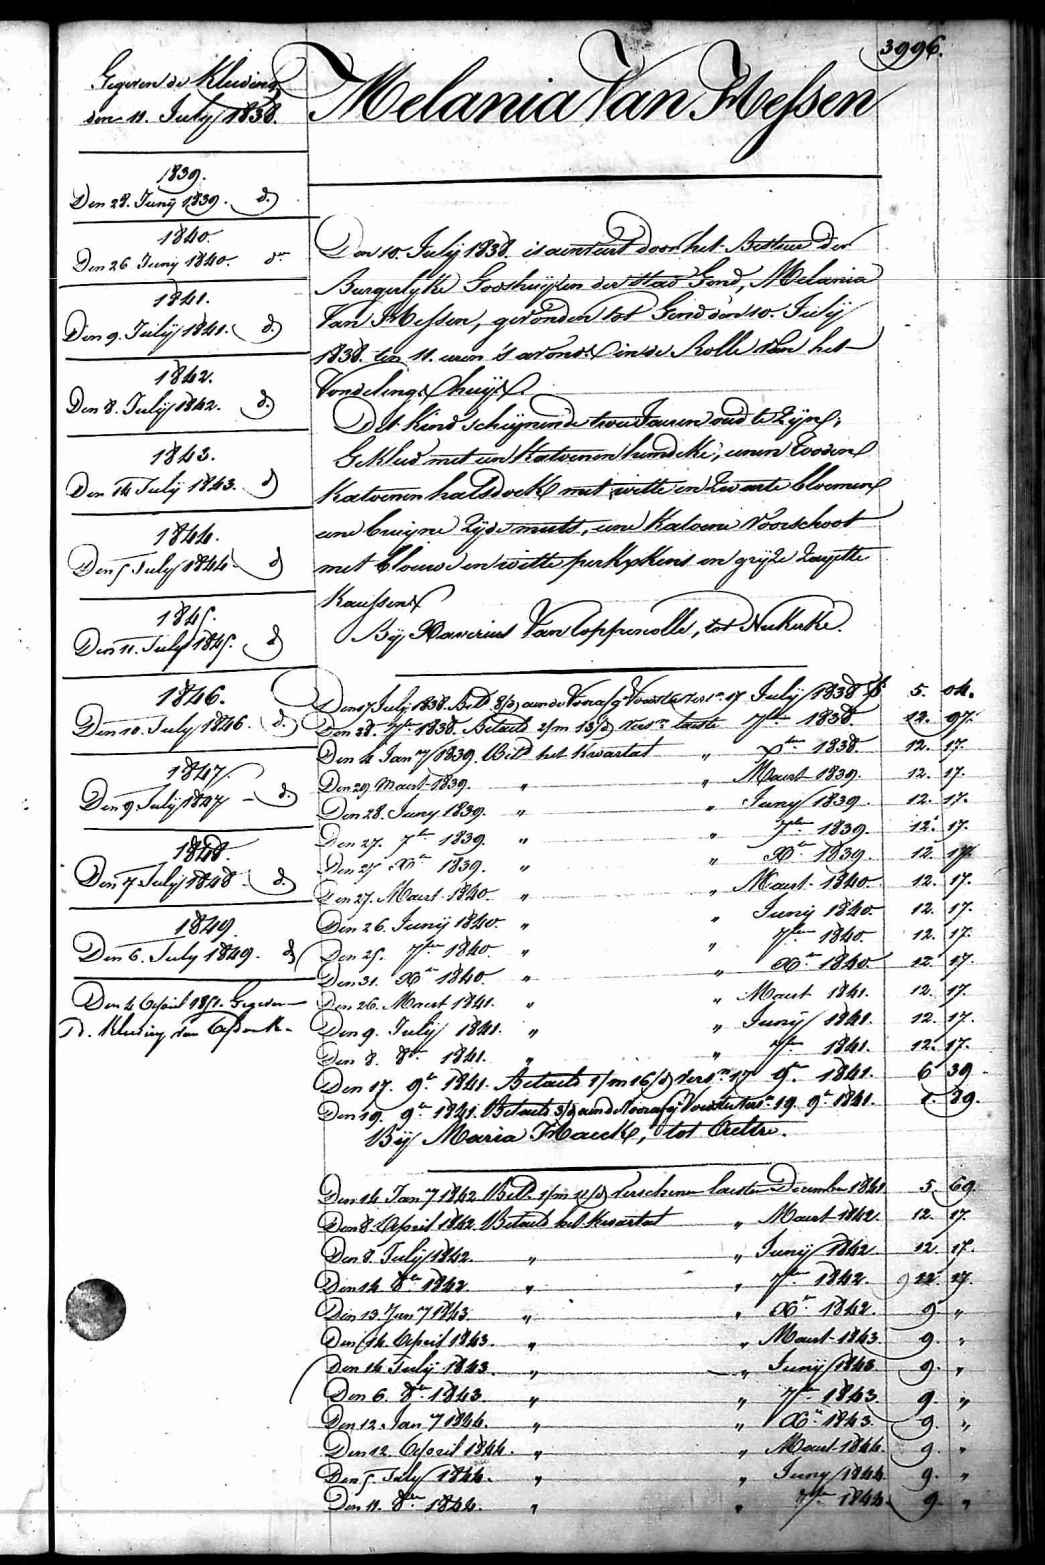 3996.
Melania Van Hessen
Gegeven de Kleeding
den 11. July 1838.
1839.
Den 28. Junij 1839. d.
1840.
Den 26 Junij 1840. do
1841.
Den 9. Julij 1841. d.
1842.
Den 8. Julij 1842. d.
1843.
Den 14 July 1843. d
1844.
Den 5 July 1844 d
1845.
Den 11. July 1845. d
1846.
Den 10. July 1846. d.
1847.
Den 9 July 1847 - d.
1848.
Den 7 July 1848 - d.
1849.
Den 6. July 1849. d
Den 4 April 1851. Gegeven
Kleeding van
Den 10. July 1838. is aenveird door het Bestuer der
Burgerlyke Godshuyzen der stad Gend, Melania
Van Hessen, gevonden tot Gend den 10. Julij
1838. ten 11. uren 's avonds in de Rolle van het
Vondelings huys.
Dit kind scheynende twee Jaeren oud te zyn,
Gekleed met een Katoenen hemdeke, eenen Rooden
Katoenen halsdoek met witte en Zwarte bloemen
eene bruyne Zyde muts, eene Katoene Voorschoot
met blouwe en witte perkxkens en gryze Zayette
Kaussens
Bij Xaverius Van Coppenolle, tot Nukerke.
Den 17 July 1838. Bett. 8/d aen de Vooraf. Voedster Vers.n 17 July 1838 f 5. 04.
Den 28. 7ber 1838. Betaelt 2/m 13/d Vers.n laeste 7ber 1838. 12. 97.
Den 4 Jan 7 1839. Bet.d het Kwartael " Xber 1838. 12. 17.
Den 29 Maert 1839. " " Maert 1839. 12. 17.
Den 28. Juny 1839. " " Juny 1839. 12. 17.
Den 27. 7ber 1839. " " 7ber 1839. 12. 17.
Den 27 Xber 1839. " " Xber 1839. 12. 17.
Den 27. Maert 1840. " " Maert 1840. 12. 17.
Den 26. Junij 1840. " " Junij 1840. 12. 17.
Den 25. 7ber 1840. " " 7ber 1840. 12. 17.
Den 31. Xber 1840. " " Xber 1840. 12 17.
Den 26. Maert 1841. " " Maert 1841. 12. 17.
Den 9. July 1841. " " Junij 1841. 12. 17.
Den 8. 8ber 1841. " " 7ber 1841. 12. 17.
Den 17. 9er 1841. Betaelt 1/m 16/d Vers.n 17 9er 1841. 6 39.
Den 19. 9er 1841. Betaelt 3/d aen de Vooraf. Voedster Vers.n 19. 9er 1841. 1. 39.
Bij Maria Haeck, tot
Den 14 Jan 7 1842 Bet.d 1/m 11/d Verschenen laesten December 1841 5 69.
Den 8. April 1842 Betaelt het Kwartael " Maert 1842. 12. 17.
Den 8. July 1842. " " Junij 1842 12. 17.
Den 14. 8ber 1842. " " 7ber 1842. 12. 17.
Den 13 Jan 7 1843. " " Xber 1842. 9. "
Den 14 April 1843. " " Maert 1843. 9. "
Den 14 July 1843. " " Junij 1843 9. "
Den 6. 8ber 1843. " " 7ber 1843 9. "
Den 12. Jan 7 1844. " " Xber 1843. 9. "
Den 12. April 1844. " " Maert 1844. 9. "
Den 5 July 1844. " " Juny 1844 9. "
Den 11. 8ber 1844. " " 7ber 1844 9. "